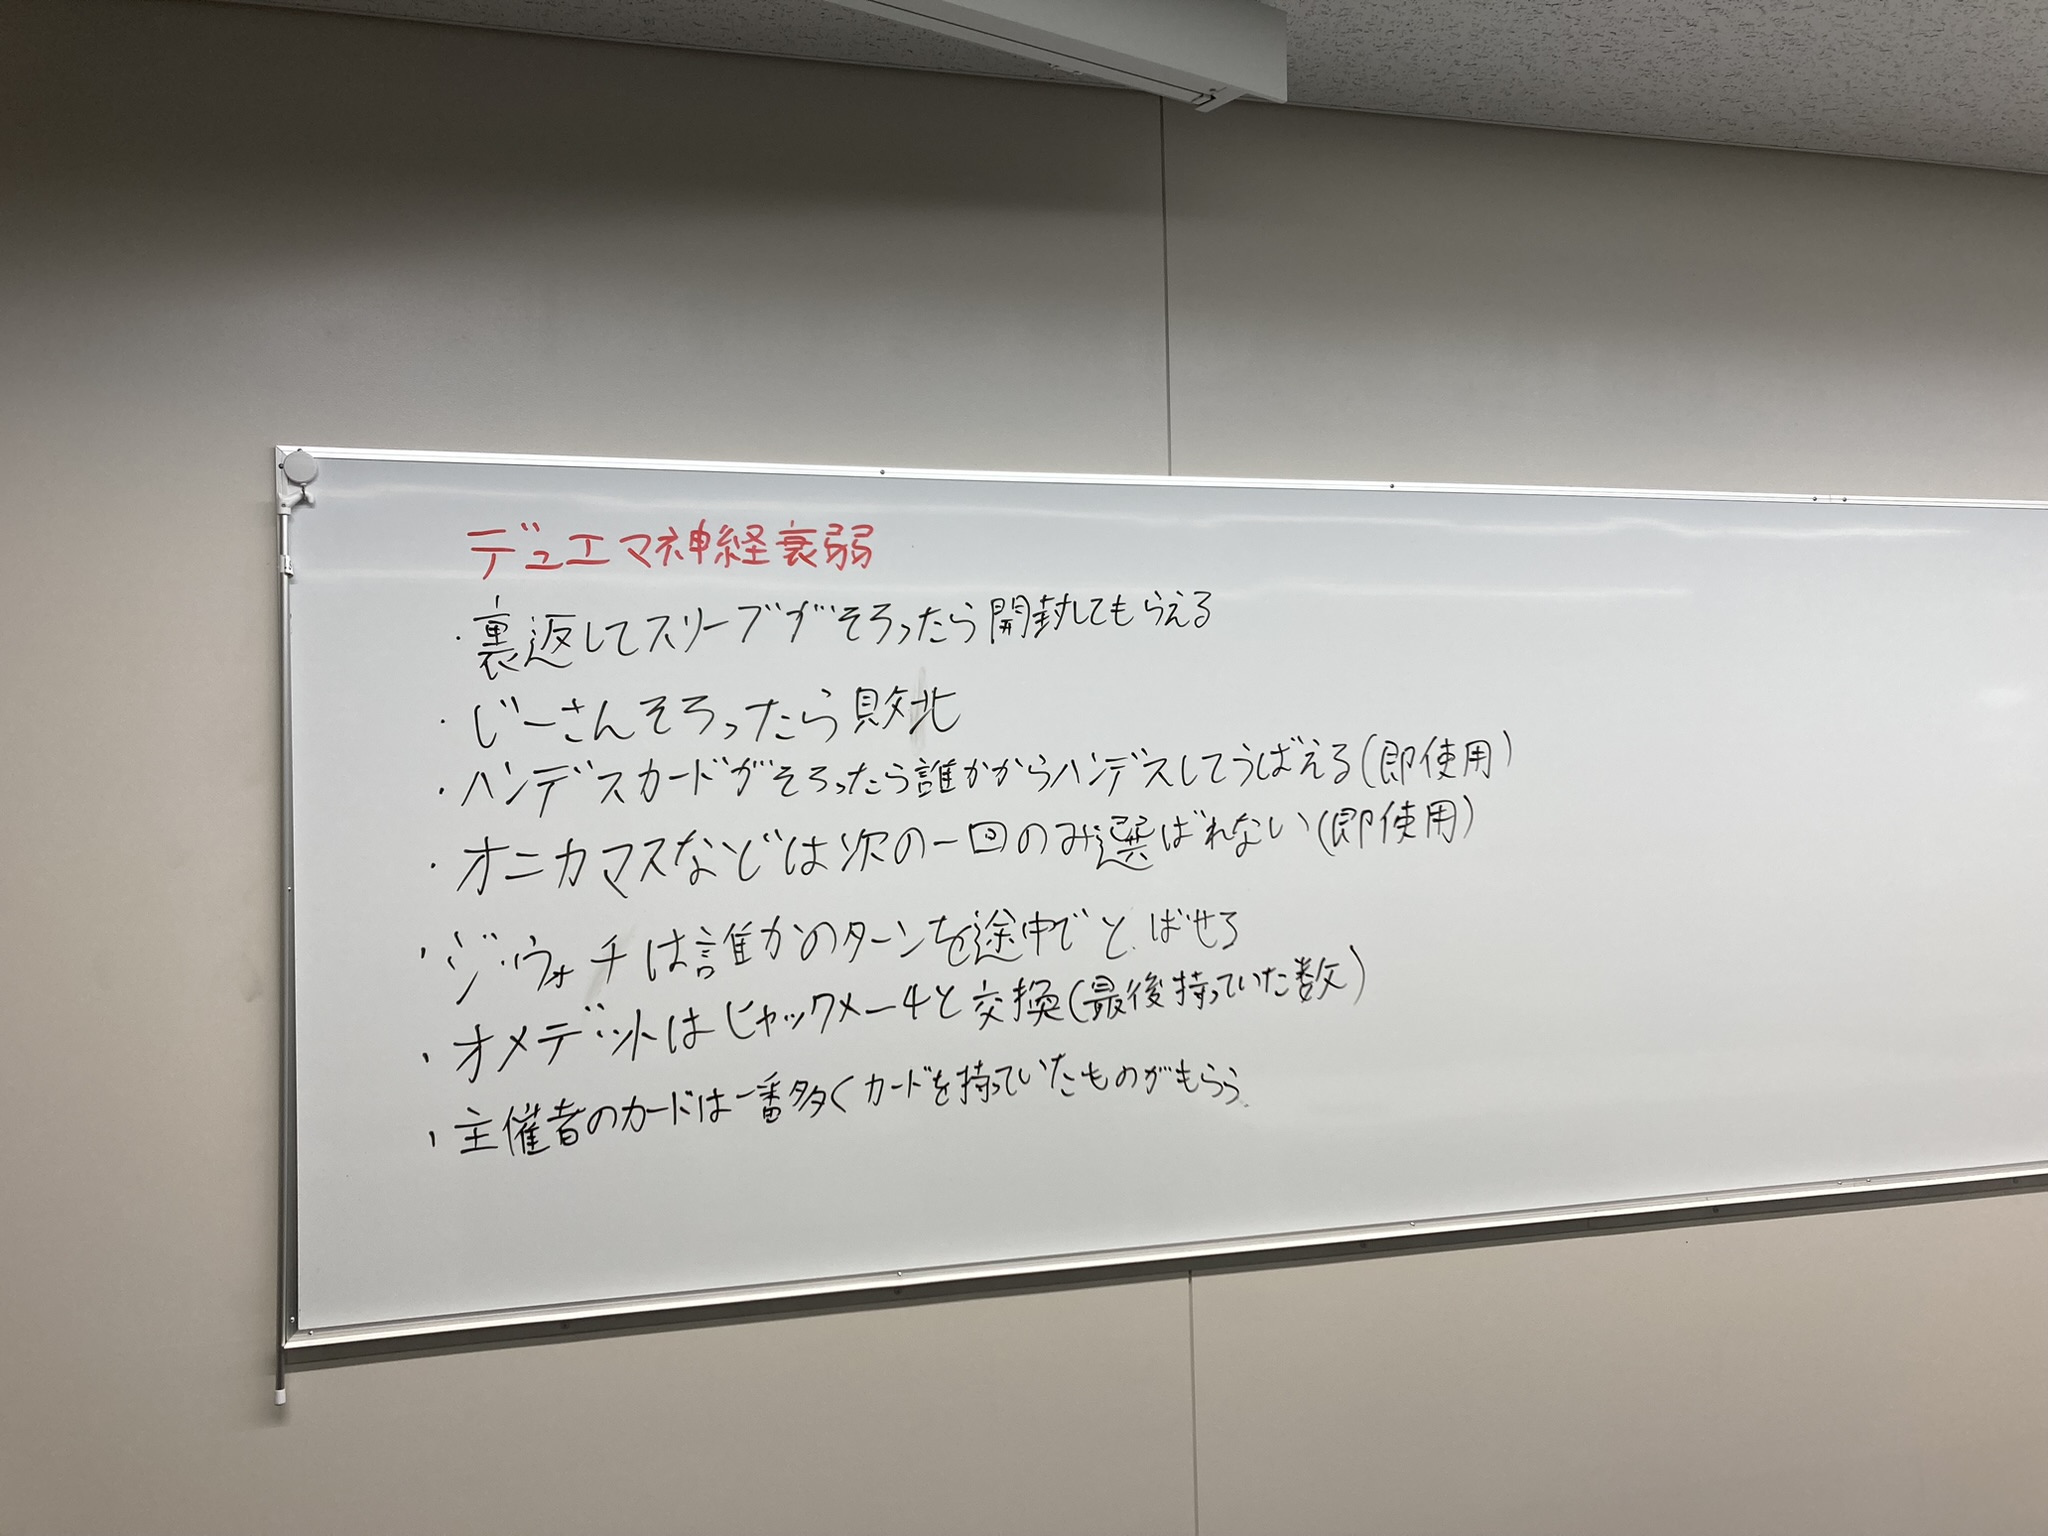 デュエマ神経衰弱
・裏返してスリーブがそろったら開封してもらえる
・じーさんそろったら敗北
・ハンデスカードがそろったら誰かからハンデスしてうばえる(即使用)
・オニカマスなどは次の一回のみ選ばれない(即使用)
・ジ・ウォッチは誰かのターンを途中でとばせる
・オメデ・トットはヒャックメー4と交換(最後持っていた数)
・主催者のカードは一番多くカードを持っていたものがもらう